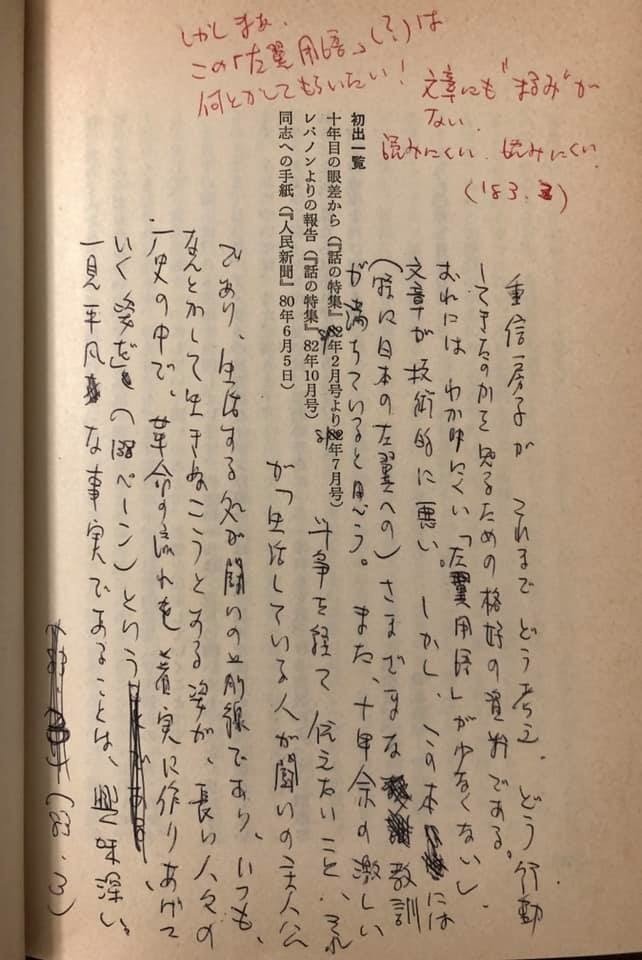 しかしまあ、
この「左翼用語」(?)は
何とかしてもらいたい!
文章にも"まるみ"が
ない.
読みにくい、読みにくい.
(183.3)
初出一覧
十年目の眼差から(『話の特集』82年2月号より82年7月号)
レバノンよりの報告(『話の特集』82年10月号)
同志への手紙(『人民新聞』80年6月5日)
重信房子が これまで どう考え、どう行動
してきたのかを知るための格好の資料である。
おれには わかりにくい「左翼用語」が少なくないし、
文章が技術的に悪い。しかし、この本には
(特に日本の左翼への)さまざまな教訓
が満ちていると思う。また、十年余の激しい
斗争を経て 伝えたいこと、それ
が「生活している人が闘いの主人公
であり、生活する処が闘いの最前線であり、いつも、
なんとかして生きぬこうとする姿が、長い人々の
歴史の中で、革命の流れを着実に作りあげて
いく姿だ」(138ページ)という
一見平凡な事実であることは、興味深い。
(83.3)